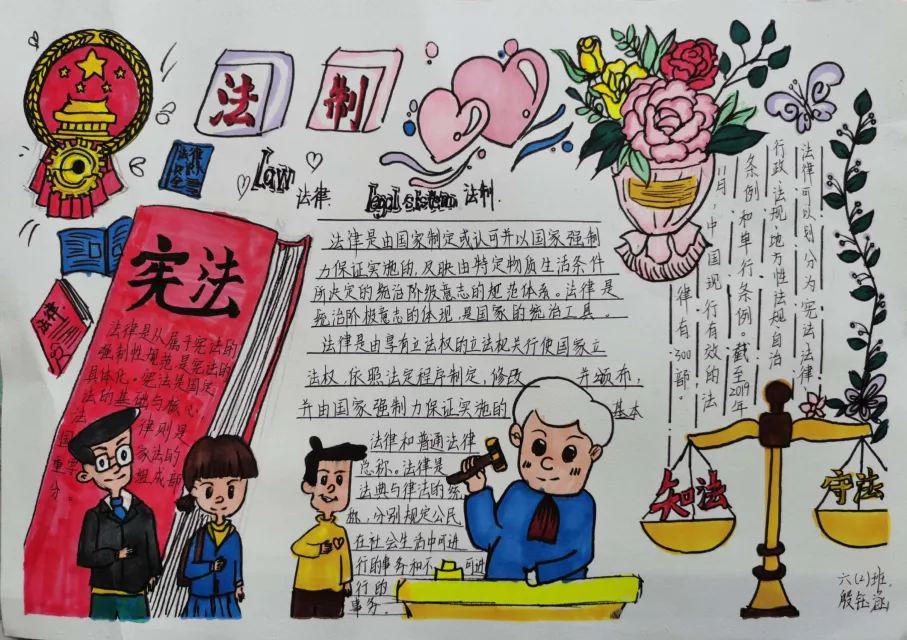 法制
法律
Law
法律
Legal system 法制.
法律是由国家制定或认可并以国家强制
力保证实施的,反映由特定物质生活条件
所决定的统治阶级意志的规范体系。法律是
统治阶级意志的体现,是国家的统治工具。
法律是由享有立法权的立法机关行使国家立
法权,依照法定程序制定,修改 并颁布,
并由国家强制力保证实施的 基本
法律和普通法律
总称。法律是
法典与律法的统
称,分别规定公民
在社会生活中可进
行的事务和不 可进
行的
事务
法律可以划分为宪法,法律
行政法规,地方性法规,自治
条例和单行条例。截至2019年
11月,中国现行有效的法
律有300部。
宪法
法律是从属于宪法的
强制性规范,是宪法的
具体化。宪法是国
法的基础与核心
法 律则是
国 家法的
重 组成部
分。
法律
知法
守法
六(2)班.
殷钰涵